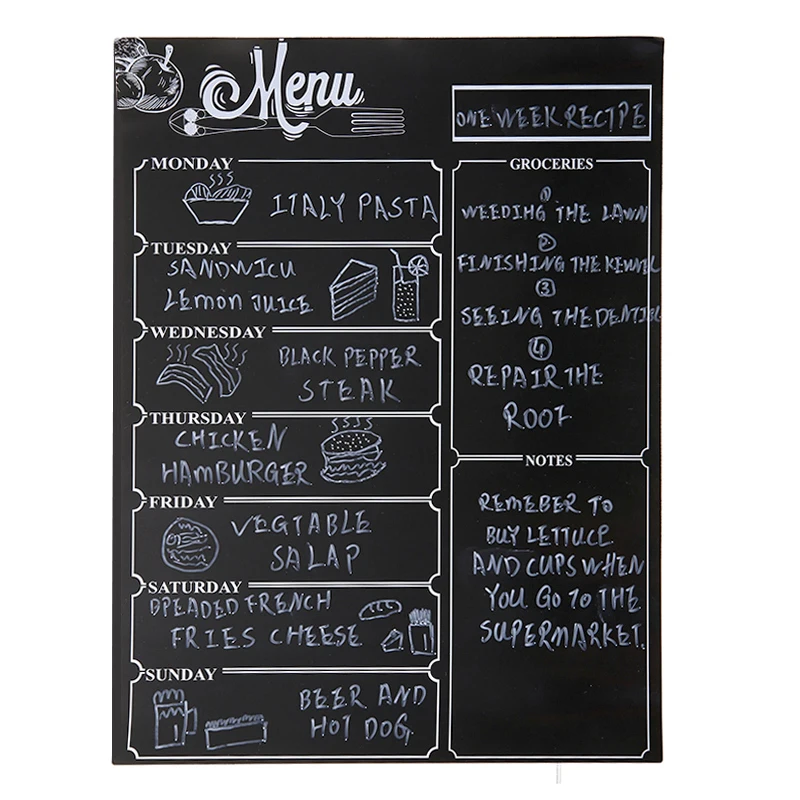 Menu
ONE WEEK RECIPE
MONDAY
ITALY PASTA
TUESDAY
SANDWICU
Lemon JUICE
WEDNESDAY
BLACK PEPPER
STEAK
THURSDAY
CHICKEN
HAMBURGER
FRIDAY
VEGTABLE
SALAP
SATURDAY
BPEADED FRENCH
FRIES CHEESE
SUNDAY
BEER AND
HOT DOG
GROCERIES
①
WEEDING THE LAWN
②
FINISHING THE KENNEL
③
SEEING THE DENTIST
④
REPAIR THE
ROOF
NOTES
REMEBER To
BUY LETTUCE
AND CUPS WHEN
YOU GO TO THE
SUPERMARKET.